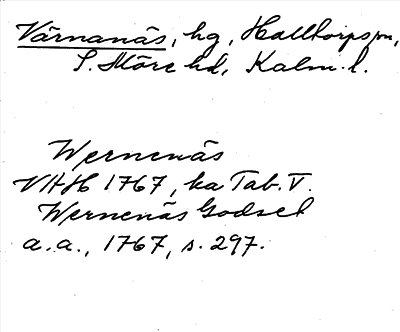 Värnanäs, hg, Halltorps sn,
S. Möre hd, Kalm. l.
Wernenäs
VAH 1767, ka Tab. V.
Wernenäs Godset
a.a., 1767, s. 297.